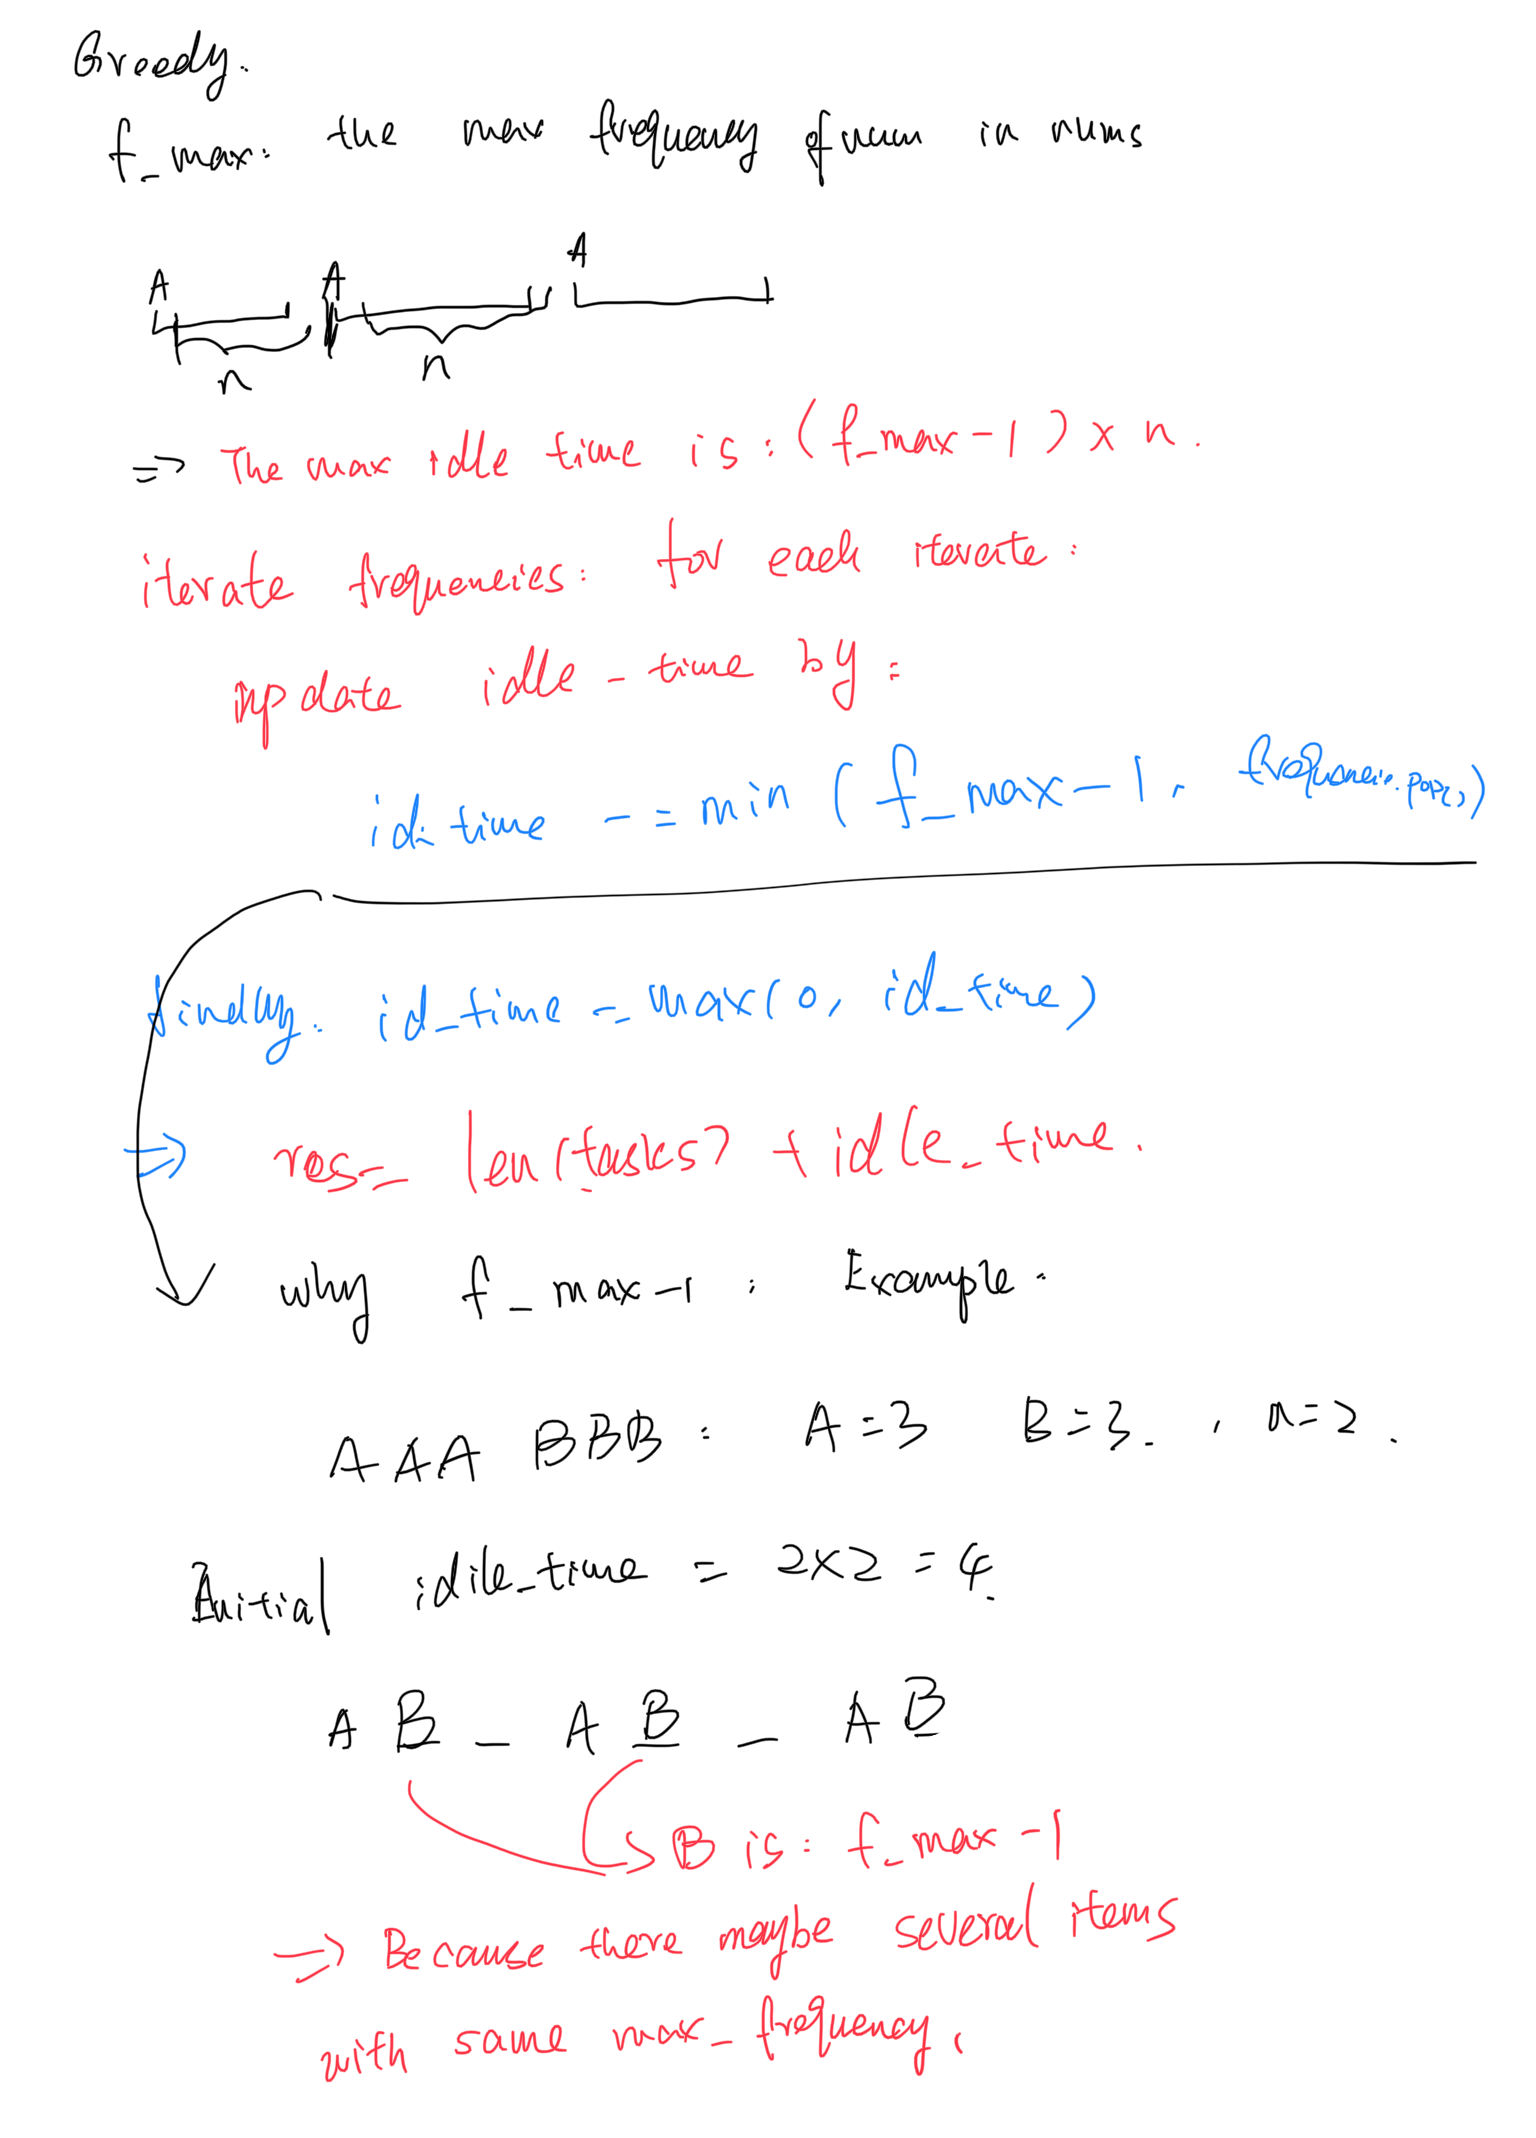 Greedy.
f_max: the max frequency of num in nums
A A A
n n
=> The max idle time is: (f_max-1) x n.
iterate frequencies: for each iterate:
update idle-time by:
id-time -= min (f_max-1, frequencie.pop())
finally: id_time = max(0, id_time)
=> res= len(tasks) + idle_time.
why f_max-1: Example.
AAA BBB: A=3 B=3. , n=2.
Initial idile_time = 2x2 = 4.
A B _ A B _ A B
B is: f_max-1
=> Because there maybe several items
with same max_frequency.